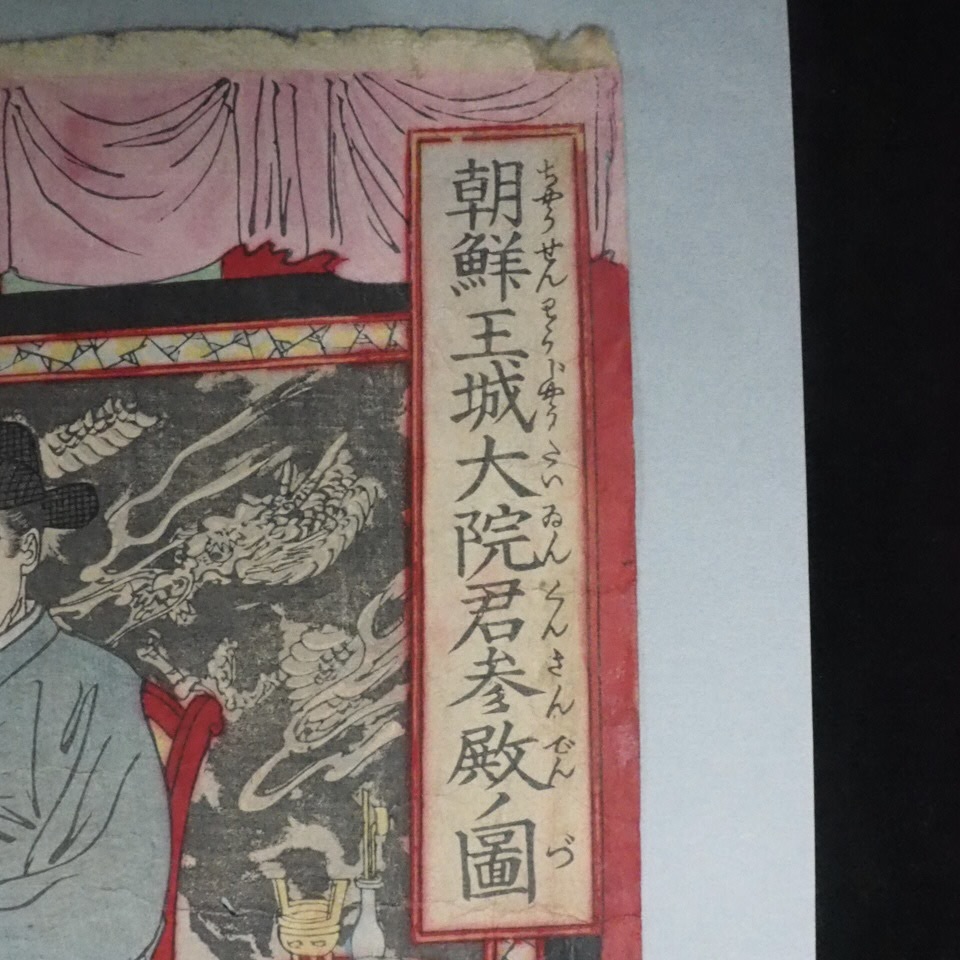 朝鮮王城大院君参殿ノ圖
ちやうせんわうじやうたいゐんくんさんでんづ